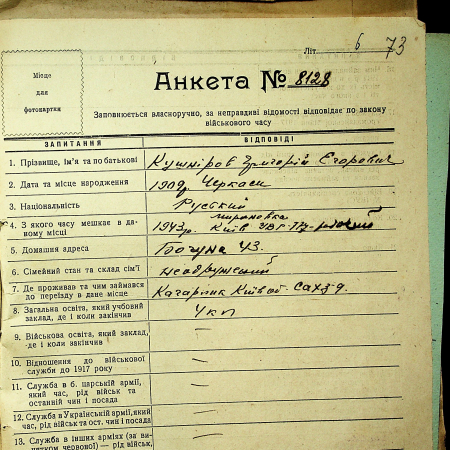 Літ. 6 73
Місце
для
фотокартки
Анкета № 8128
Заповнюється власноручно, за неправдиві відомості відповідає по закону
військового часу
ЗАПИТАННЯ ВІДПОВІДІ
1. Прізвище, ім'я та по батькові Кушніров Григорій Єгорович
2. Дата та місце народження 1909р. Черкаси
3. Національність Руский
4. З якого часу мешкає в да- мироновка
ному місці 1943р. Київ
5. Домашня адреса Богуна 43.
6. Сімейний стан та склад сім'ї
7. Де проживав та чим займався
до переїзду в дане місце Кагарлик Київ об. Сахз-д
8. Загальна освіта, який учбовий
заклад, де і коли закінчив 4 кл
9. Військова освіта, який заклад,
де і коли закінчив —
10. Відношення до військової
служби до 1917 року —
11. Служба в б. царській армії,
який час, рід військ та
останній чин і посада —
12. Служба в Українській армії, який
час, рід військ та ост. чин і посада —
13. Служба в інших арміях (за ви-
нятком червової) — рід військ, —